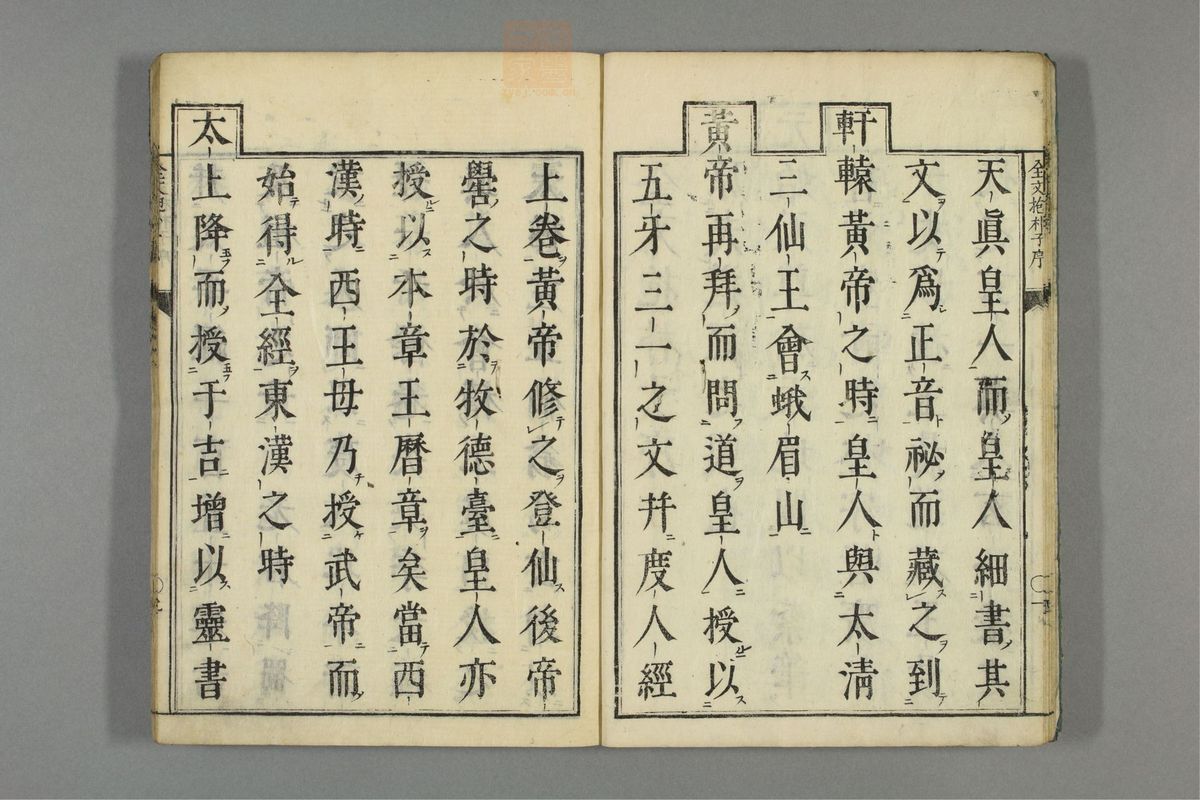 全文抱朴子序
天眞皇人而皇人細書其
文以爲正音祕而藏之到
軒轅黃帝之時皇人與太淸
三仙王會蛾眉山
黃帝再拜而問道皇人授以
五牙三一之文幷度人經
上卷黃帝修之登仙後帝
嚳之時於牧德臺皇人亦
授以本章王曆章矣當西
漢時西王母乃授武帝而
始得全經東漢之時
太上降而授于吉增以靈書